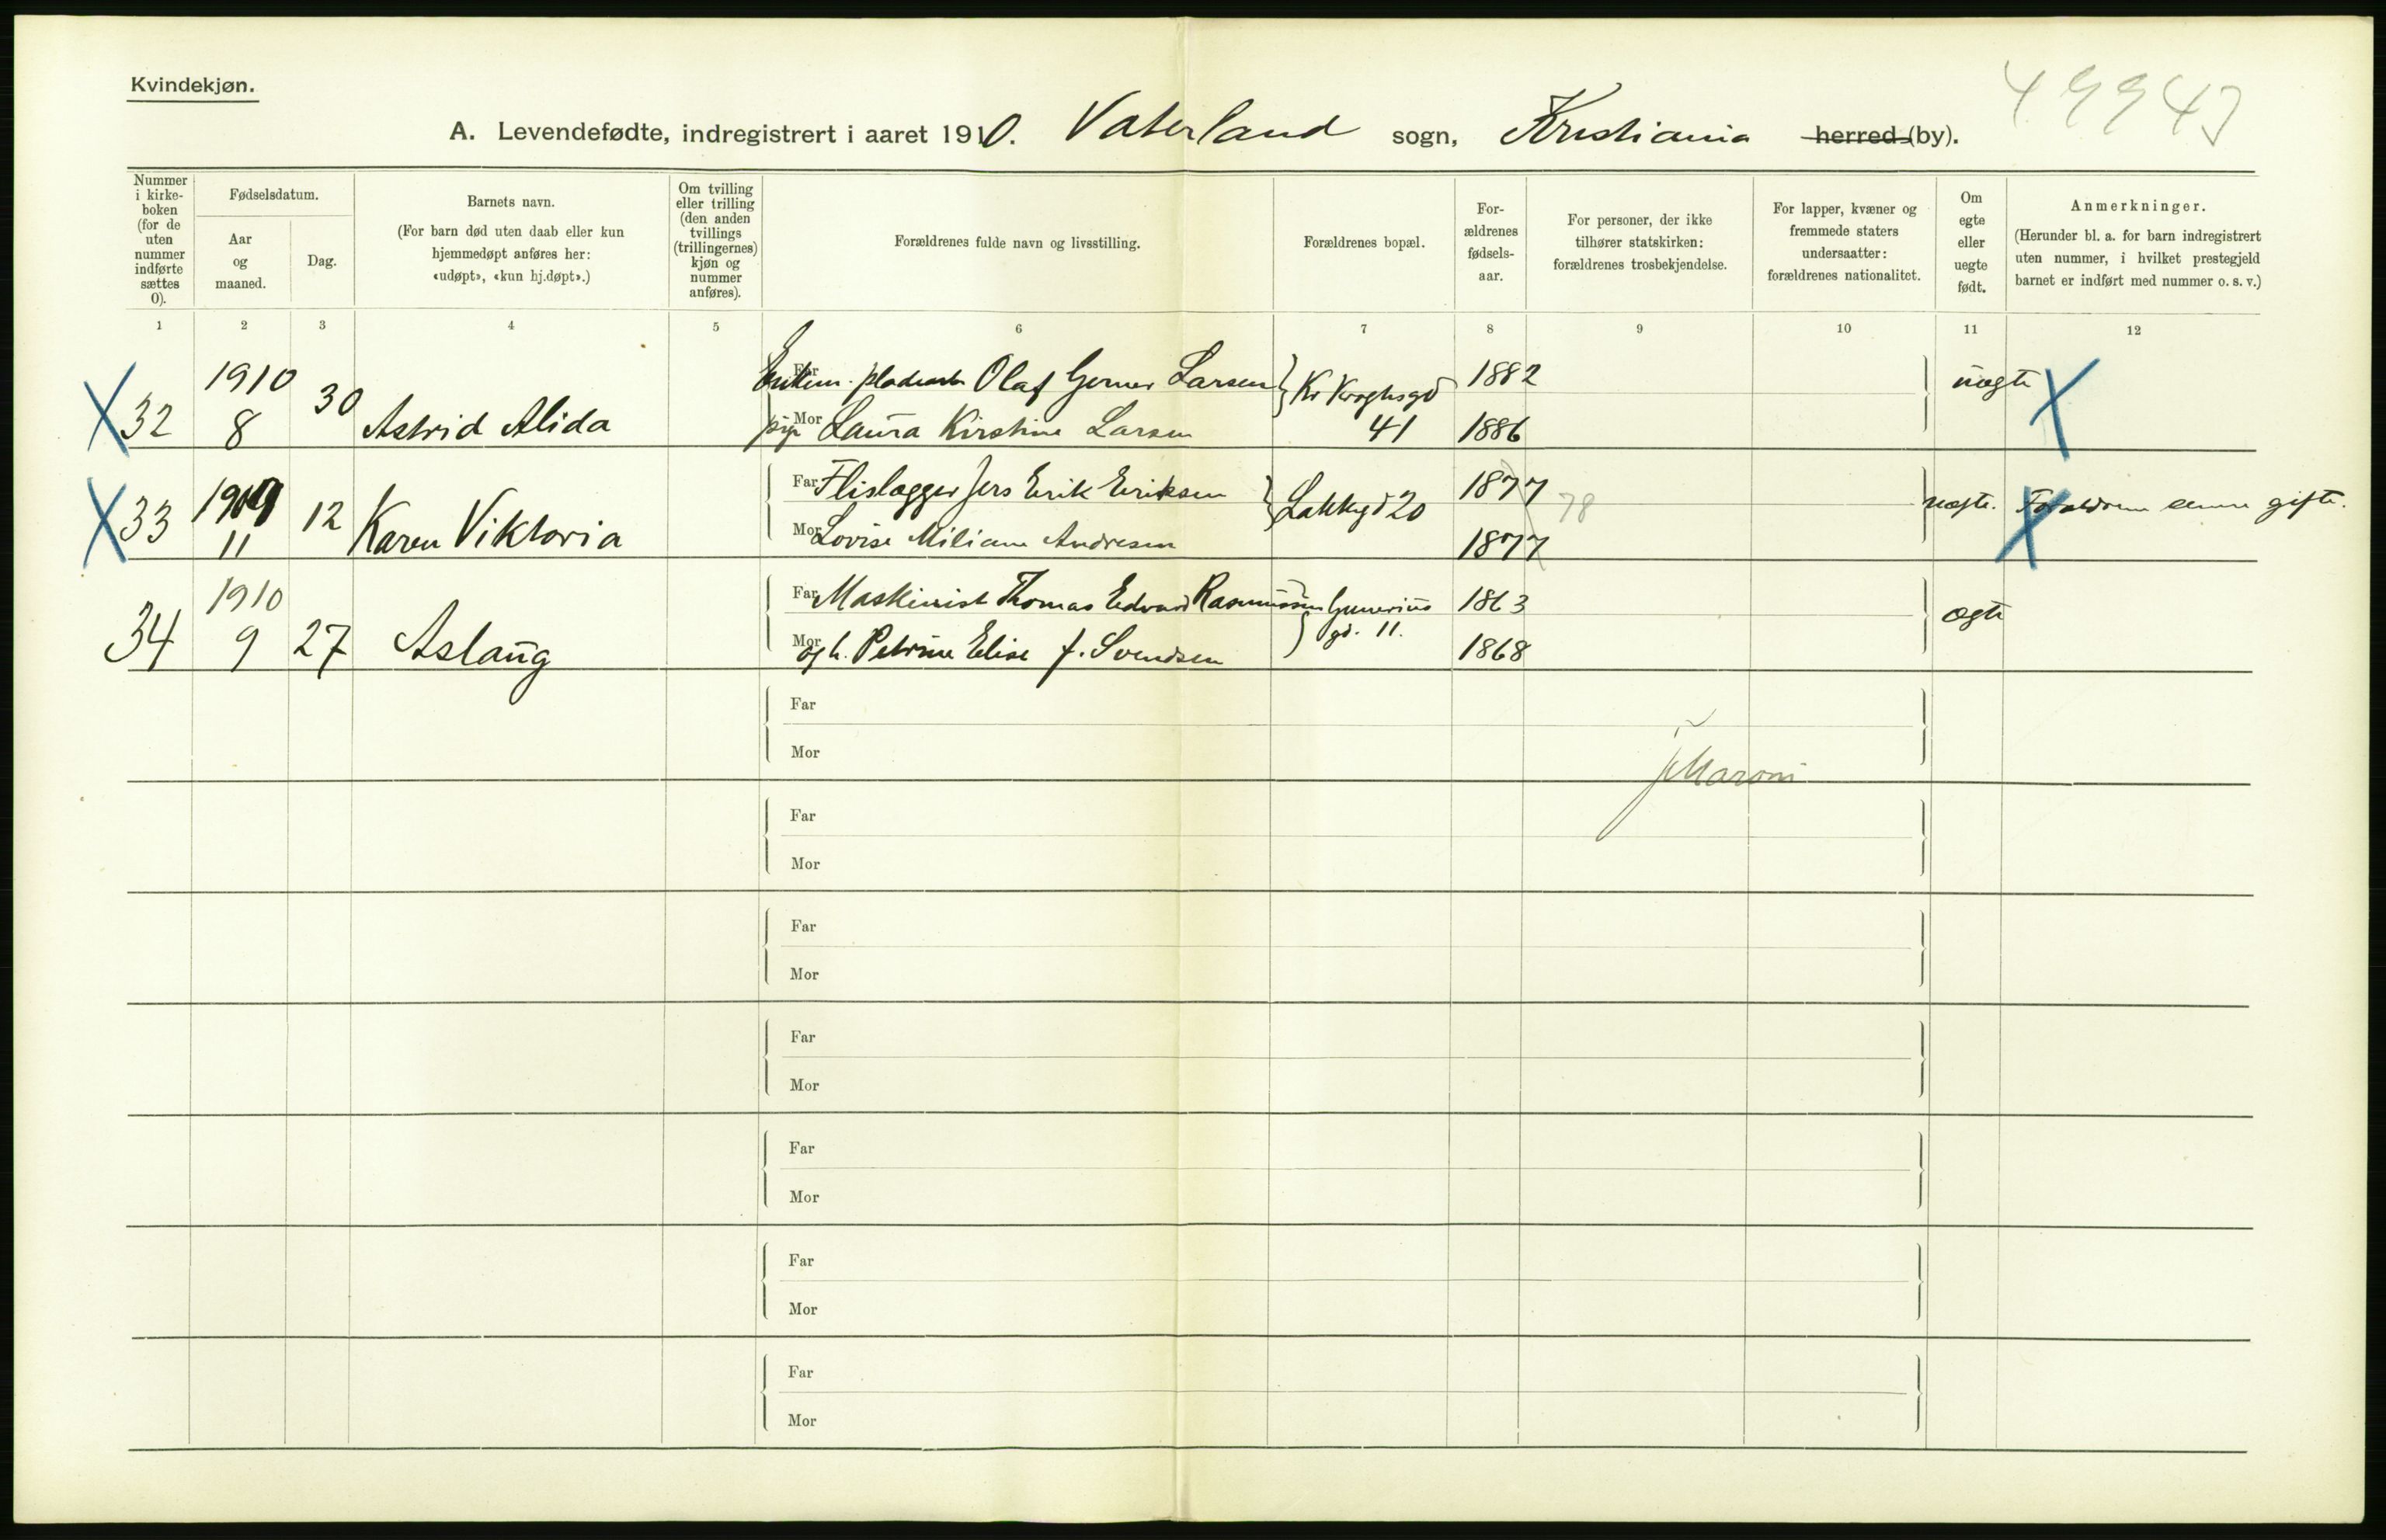 Kvindekjøn.
A. Levendefødte, indregistrert i aaret 1910. Vaterland sogn, Kristiania herred (by).
Nummer i kirke-boken (for de uten nummer indførte sættes 0).
Fødselsdatum.
Aar og maaned.
Dag.
Barnets navn.
(For barn død uten daab eller kun hjemmedøpt anføres her: «udøpt», «kun hj.døpt».)
Om tvilling eller trilling (den anden tvillings (trillingernes) kjøn og nummer anføres).
Forældrenes fulde navn og livsstilling.
Forældrenes bopæl.
For-ældrenes fødsels-aar.
For personer, der ikke tilhører statskirken: forældrenes trosbekjendelse.
For lapper, kvæner og fremmede staters undersaatter: forældrenes nationalitet.
Om egte eller uegte født.
Anmerkninger.
(Herunder bl. a. for barn indregistrert uten nummer, i hvilket prestegjeld barnet er indført med nummer o. s. v.)
1 2 3 4 5 6 7 8 9 10 11 12
X 32 1910 8 30 Astrid Alida
Far Olaf Gerner Larsen Kr Kroghsgd 1882 uægte X
pige Mor Laura Kirstine Larsen 41 1886
X 33 11 12 Karen Viktoria
Far Flislægger Jers Erik Eriksen Lakkegd 20 1877 78 uægte. Forældrene senere gifte. X
Mor Lovise Miliane Andresen 1877
34 1910 9 27 Aslaug
Far Maskinist Thomas Edvard Rasmussen Gunerius 1863 ægte
Mor og h. Petrine Elise f. Svendsen gd. 11. 1868
Far
Mor
JMaroni
Far
Mor
Far
Mor
Far
Mor
Far
Mor
Far
Mor
Far
Mor